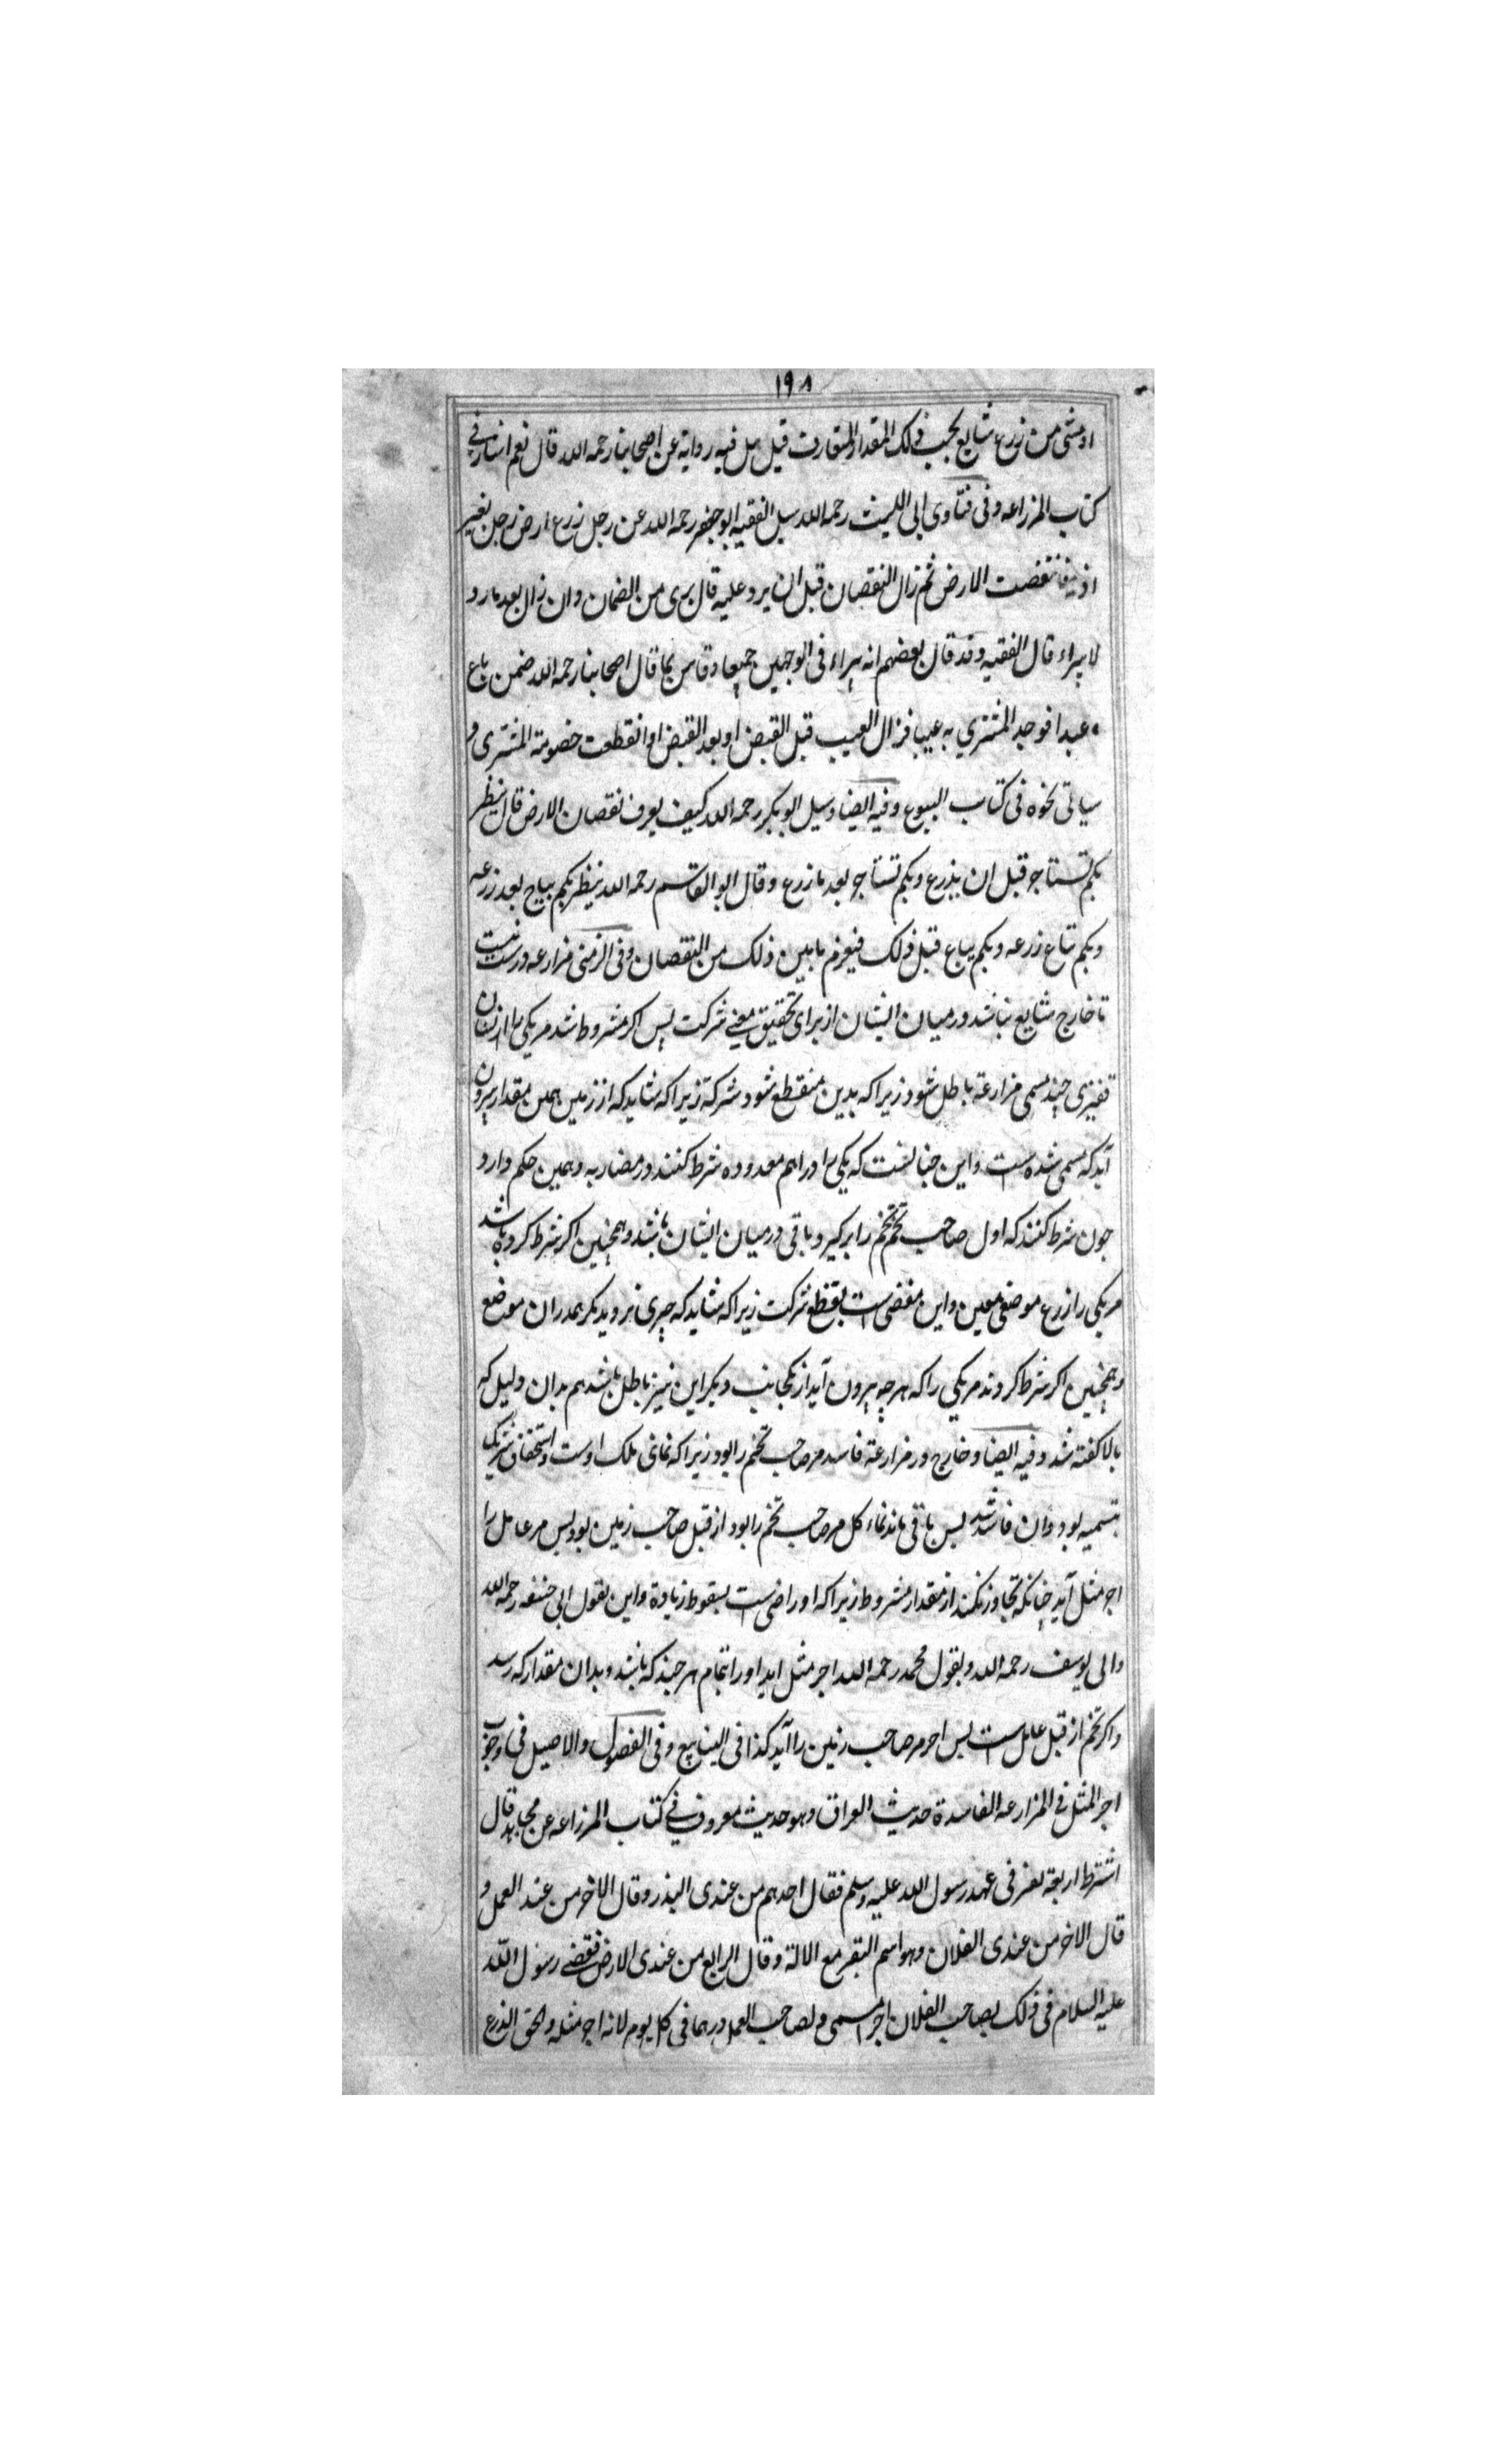 ۱۹۸
او شئ من زرع شایع یجب ذلک المقدار المتعارف قیل هل فیه روایة عن اصحابنا رحمه الله قال نعم اشار فی
کتاب المزراعه وفی فتاوی ابی اللیث رحمه الله سیل الفقیه ابو جعفر رحمه الله عن رجل زرع ارض رجل بغیر
اذنه فانتقصت الارض ثم زال النقصان قبل ان یرد علیه قال بری من الضمان وان زال بعد ما رد
لا یبراء قال الفقیه وقد قال بعضهم انه یبراء فی الوجهین جمیعا وقاس بما قال اصحابنا رحمه الله ضمن باع
عبدا فوجد المشتری به عیب فزال العیب قبل القبض او بعد القبض او انقطعت خصومة المشتری و
سیاتی نحوه فی کتاب البیوع وفیه ایضا وسیل ابو بکر رحمه الله کیف یعرف نقصان الارض قال ینظر
بکم تستاجر قبل ان یزرع وبکم تستاجر بعد ما زرع وقال ابو القاسم رحمه الله ینظر بکم یباع بعد زرعه
وبکم تباع زرعه وبکم یباع قبل ذلک فیغرم ما بین ذلک من النقصان وفی الزمنی مزارعه درست نیست
تا خارج شایع نباشد درمیان ایشان از برای تحقیق معنے شرکت پس اکر مشروط شد مر یکی را از ایشان
قفیزی چند مسمی مزارعة باطل شود زیرا که بدین منقطع شود شرکة زیرا که شاید که از زمین همین مقدار بیرون
آید که مسمی شده است واین چنانست که یکی را دراهم معدوده شرط کنند در مضاربه وهمین حکم دارد
چون شرط کنند که اول صاحب تخم تخم را بر کیرد و باقی درمیان ایشان باشد وهمچنین اکر شرط کرده باشد
مر یکی را زرع موضعی معین واین مفضی است بقطع شرکت زیرا که شاید که چیزی نروید مکر بهمدران موضع
وهمچنین اکر شرط کردند مر یکی را که هر چه بیرون آید از یکجانب ودیکر این نیز باطل باشد هم بدان دلیل که
بالا کفته شد وفیه ایضا وخارج در مزارعة فاسد مر صاحب تخم را بود زیرا که نمای ملک اوست واستحقاق شریک
بتسمیه بود وان فاسد شد پس باقی ماند نماء کل مر صاحب تخم را بود از قبل صاحب زمین بود پس مر عامل را
اجر مثل آید چنانکه تجاوز نکند از مقدار مشروط زیرا که او راضی است بسقوط زیادة واین بقول ابی حنیفه رحمه الله
وابی یوسف رحمه الله وبقول محمد رحمه الله اجر مثل اید او را تمام هر چند که باشد وبدان مقدار که رسد
واکر تخم از قبل عامل است پس اجر مر صاحب زمین را آید کذا فی الینابیع وفی الفصول والاصیل فی وجوب
اجر المثل فی المزارعه الفاسدة حدیث العراق وهو حدیث معروف فی کتاب المزراعه عن مجاهد قال
اشترط اربعة نفر فی عهد رسول الله علیه وسلم فقال احدهم من عندی البذر وقال الاخر من عند العمل و
قال الاخر من عندی الفلان وهو اسم البقر مع الالة وقال الرابع من عندی الارض فقضے رسول الله
علیه السلام فی ذلک لصاحب الفلان اجر المسمی ولصاحب العمل درهما فی کل یوم لانه اجر مثله والحق الزرع